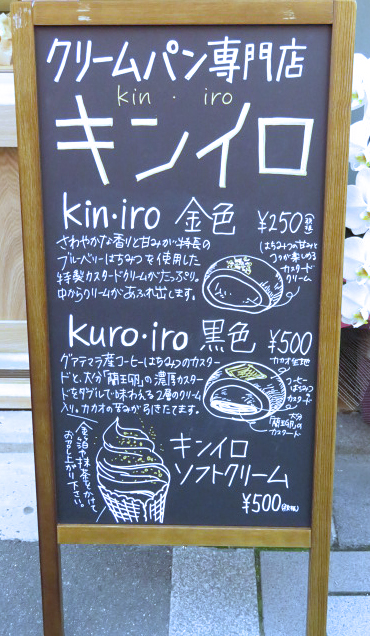 クリームパン専門店
kin · iro
キンイロ
kin·iro 金色 ¥250
さわやかな香りと甘みが特長の
ブルーベリーはちみつを使用した
特製カスタードクリームがたっぷり。
中からクリームがあふれ出します。
はちみつの甘みと
コクが楽しめる
カスタード
クリーム
kuro·iro 黒色 ¥500
グアテマラ産コーヒーはちみつのカスター
ドと、大分「蘭王卵」の濃厚カスター
ドをダブルで味わえる2層のクリーム
入り。カカオの苦みが引きたてます。
カカオ生地
コーヒー
はちみつ
カスタード
大分
「蘭王卵」の
カスタード
金箔や抹茶をかけて
お召し上がり下さい。
キンイロ
ソフトクリーム
¥500